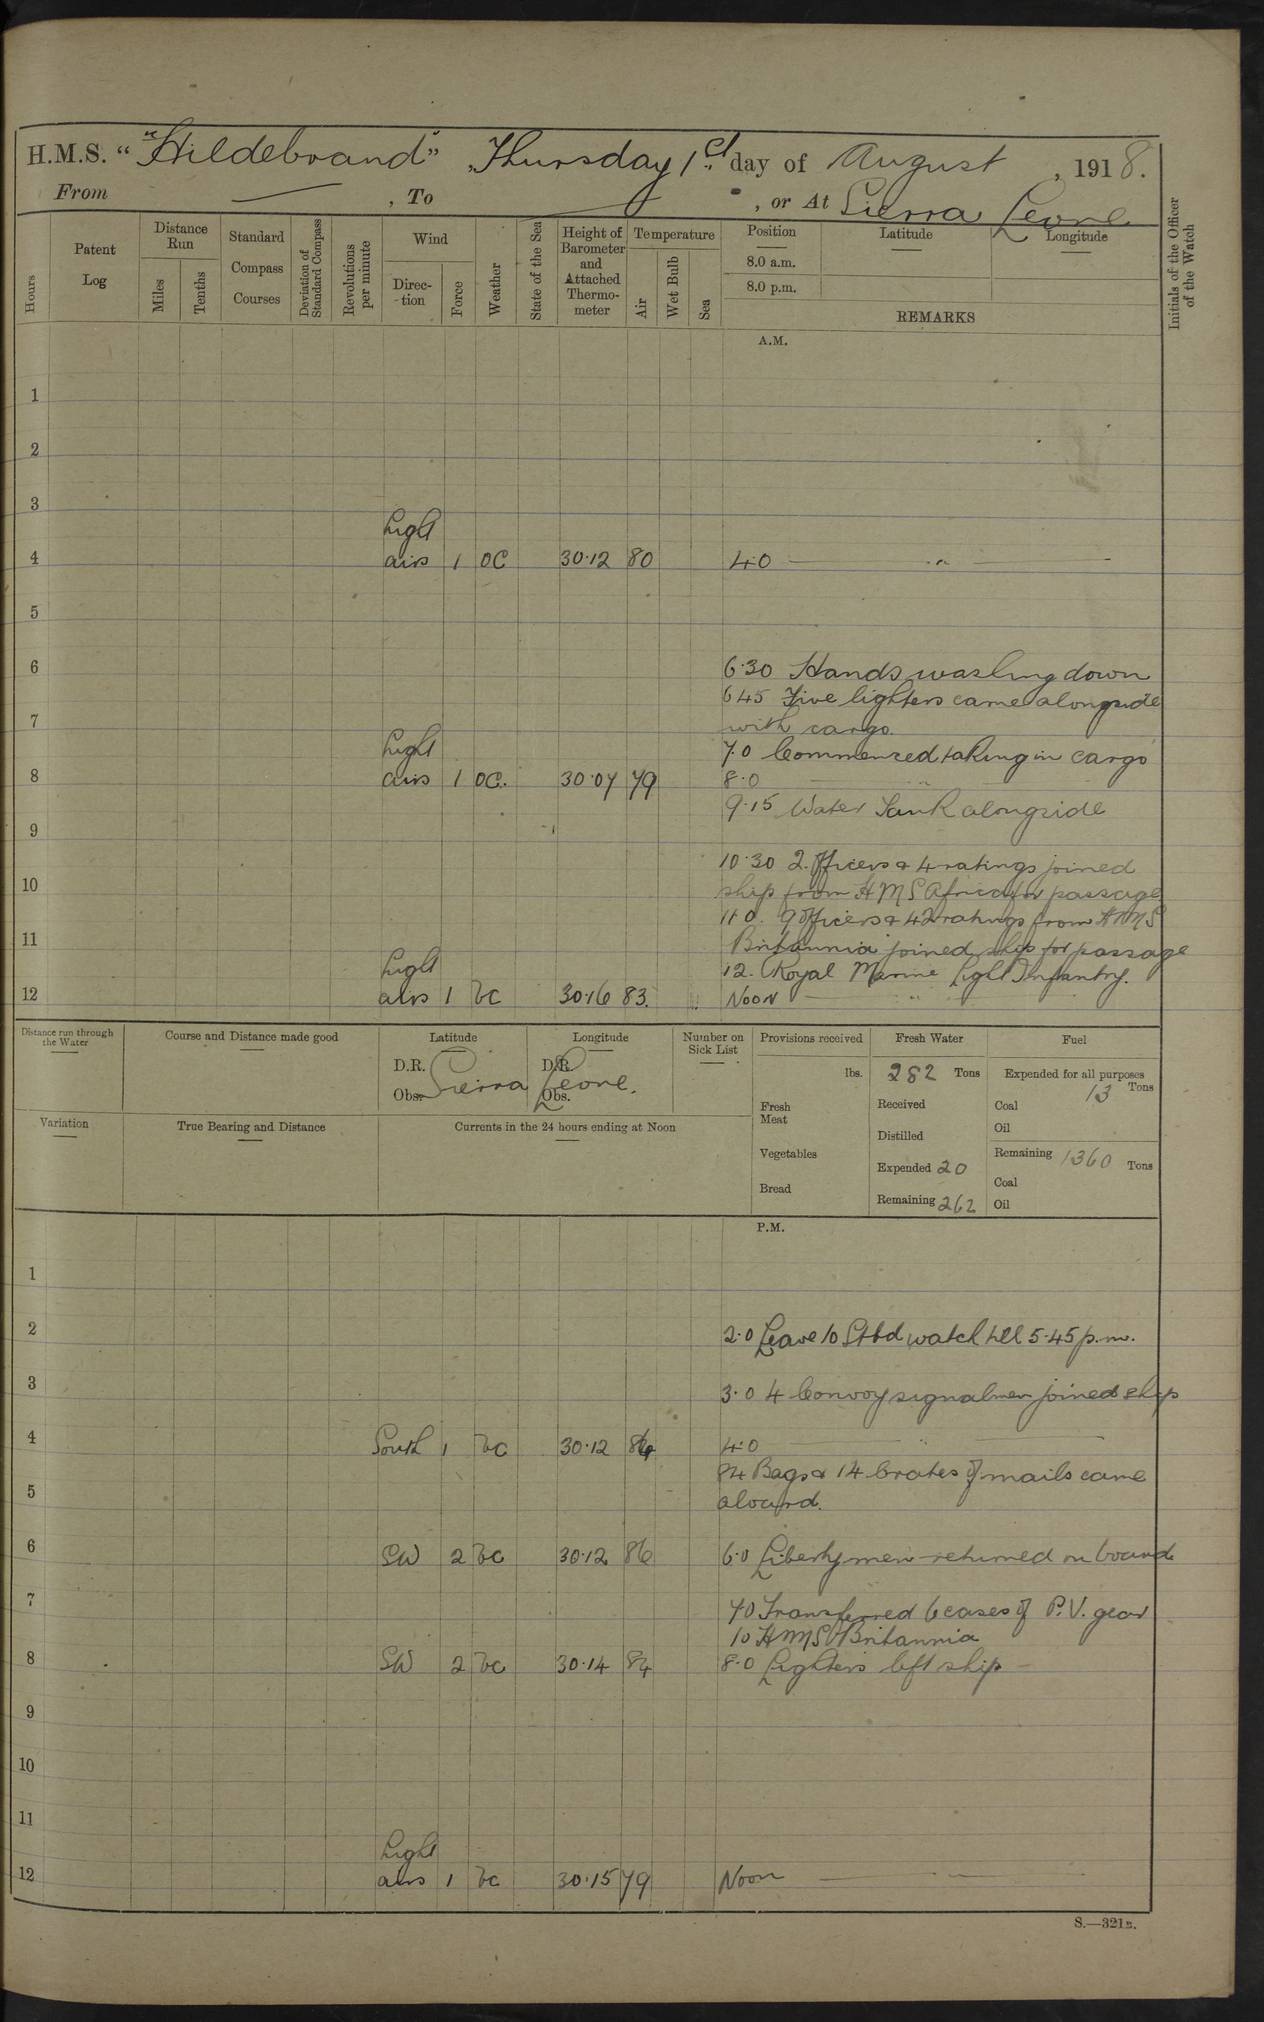 H.M.S. "Hildebrand", Thursday 1st day of August, 1918.
From , To , or At Sierra Leone
Hours
Patent Log
Distance Run
Miles
Tenths
Standard Compass Courses
Deviation of Standard Compass
Revolutions per minute
Wind
Direction
Force
Weather
State of the Sea
Height of Barometer and Attached Thermometer
Temperature
Air
Wet Bulb
Sea
Position
8.0 a.m.
8.0 p.m.
Latitude
Longitude
REMARKS
Initials of the Officer of the Watch
A.M.
1
2
3
Light
4 airs 1 OC 30.12 80 4.0 — " —
5
6 6.30 Hands washing down
6 45 Five lighters came alongside
7 with cargo.
Light 7.0 Commenced taking in cargo
8 airs 1 OC. 30.07 79 8.0
9.15 Water Tank alongside
9
10.30 2 Officers & 4 ratings joined
10 ship from HMS Africa for passage
11.0. 9 Officers & 42 ratings from HMS
11 Britannia joined ship for passage
Light 12. Royal Marine Light Infantry.
12 airs 1 bc 30.16 83. Noon — " —
Distance run through the Water
Course and Distance made good
Latitude
D.R.
Obs.
Longitude
D.R.
Obs.
Sierra Leone.
Number on Sick List
Provisions received
lbs.
Fresh Meat
Vegetables
Bread
Fresh Water
282 Tons
Received
Distilled
Expended 20
Remaining 262
Fuel
Expended for all purposes
13 Tons
Coal
Oil
Remaining 1360 Tons
Coal
Oil
Variation
True Bearing and Distance
Currents in the 24 hours ending at Noon
P.M.
1
2 2.0 Leave to Stbd watch till 5.45 p.m.
3 3.0 4 Convoy signalmen joined ship
4 South 1 bc 30.12 86 4.0 — " —
84 Bags & 14 Crates of mails came
5 aboard.
6 SW 2 bc 30.12 86 6.0 Liberty men returned on board
7 7.0 Transferred 6 cases of P.V. gear
to HMS Britannia
8 SW 2 bc 30.14 84 8.0 Lighters left ship —
9
10
11
Light
12 airs 1 bc 30.15 79 Noon —
S.—321B.